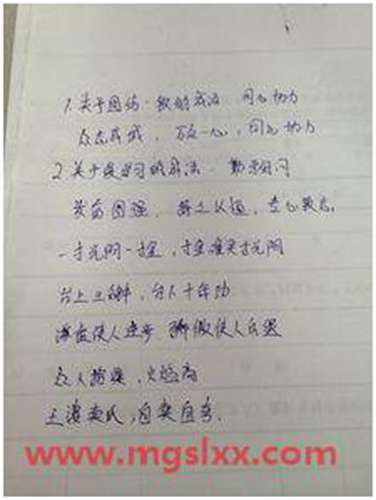 1.关于团结一致的成语：同心协力
众志成城，万众一心，同心协力
2.关于爱学习的成语：勤学好问
发奋图强，持之以恒，专心致志
一寸光阴一寸金，寸金难买寸光阴
台上三分钟，台下十年功
谦虚使人进步 骄傲使人白费
众人拾柴，火焰高
王婆卖瓜，自卖自夸.
www.mgslxx.com